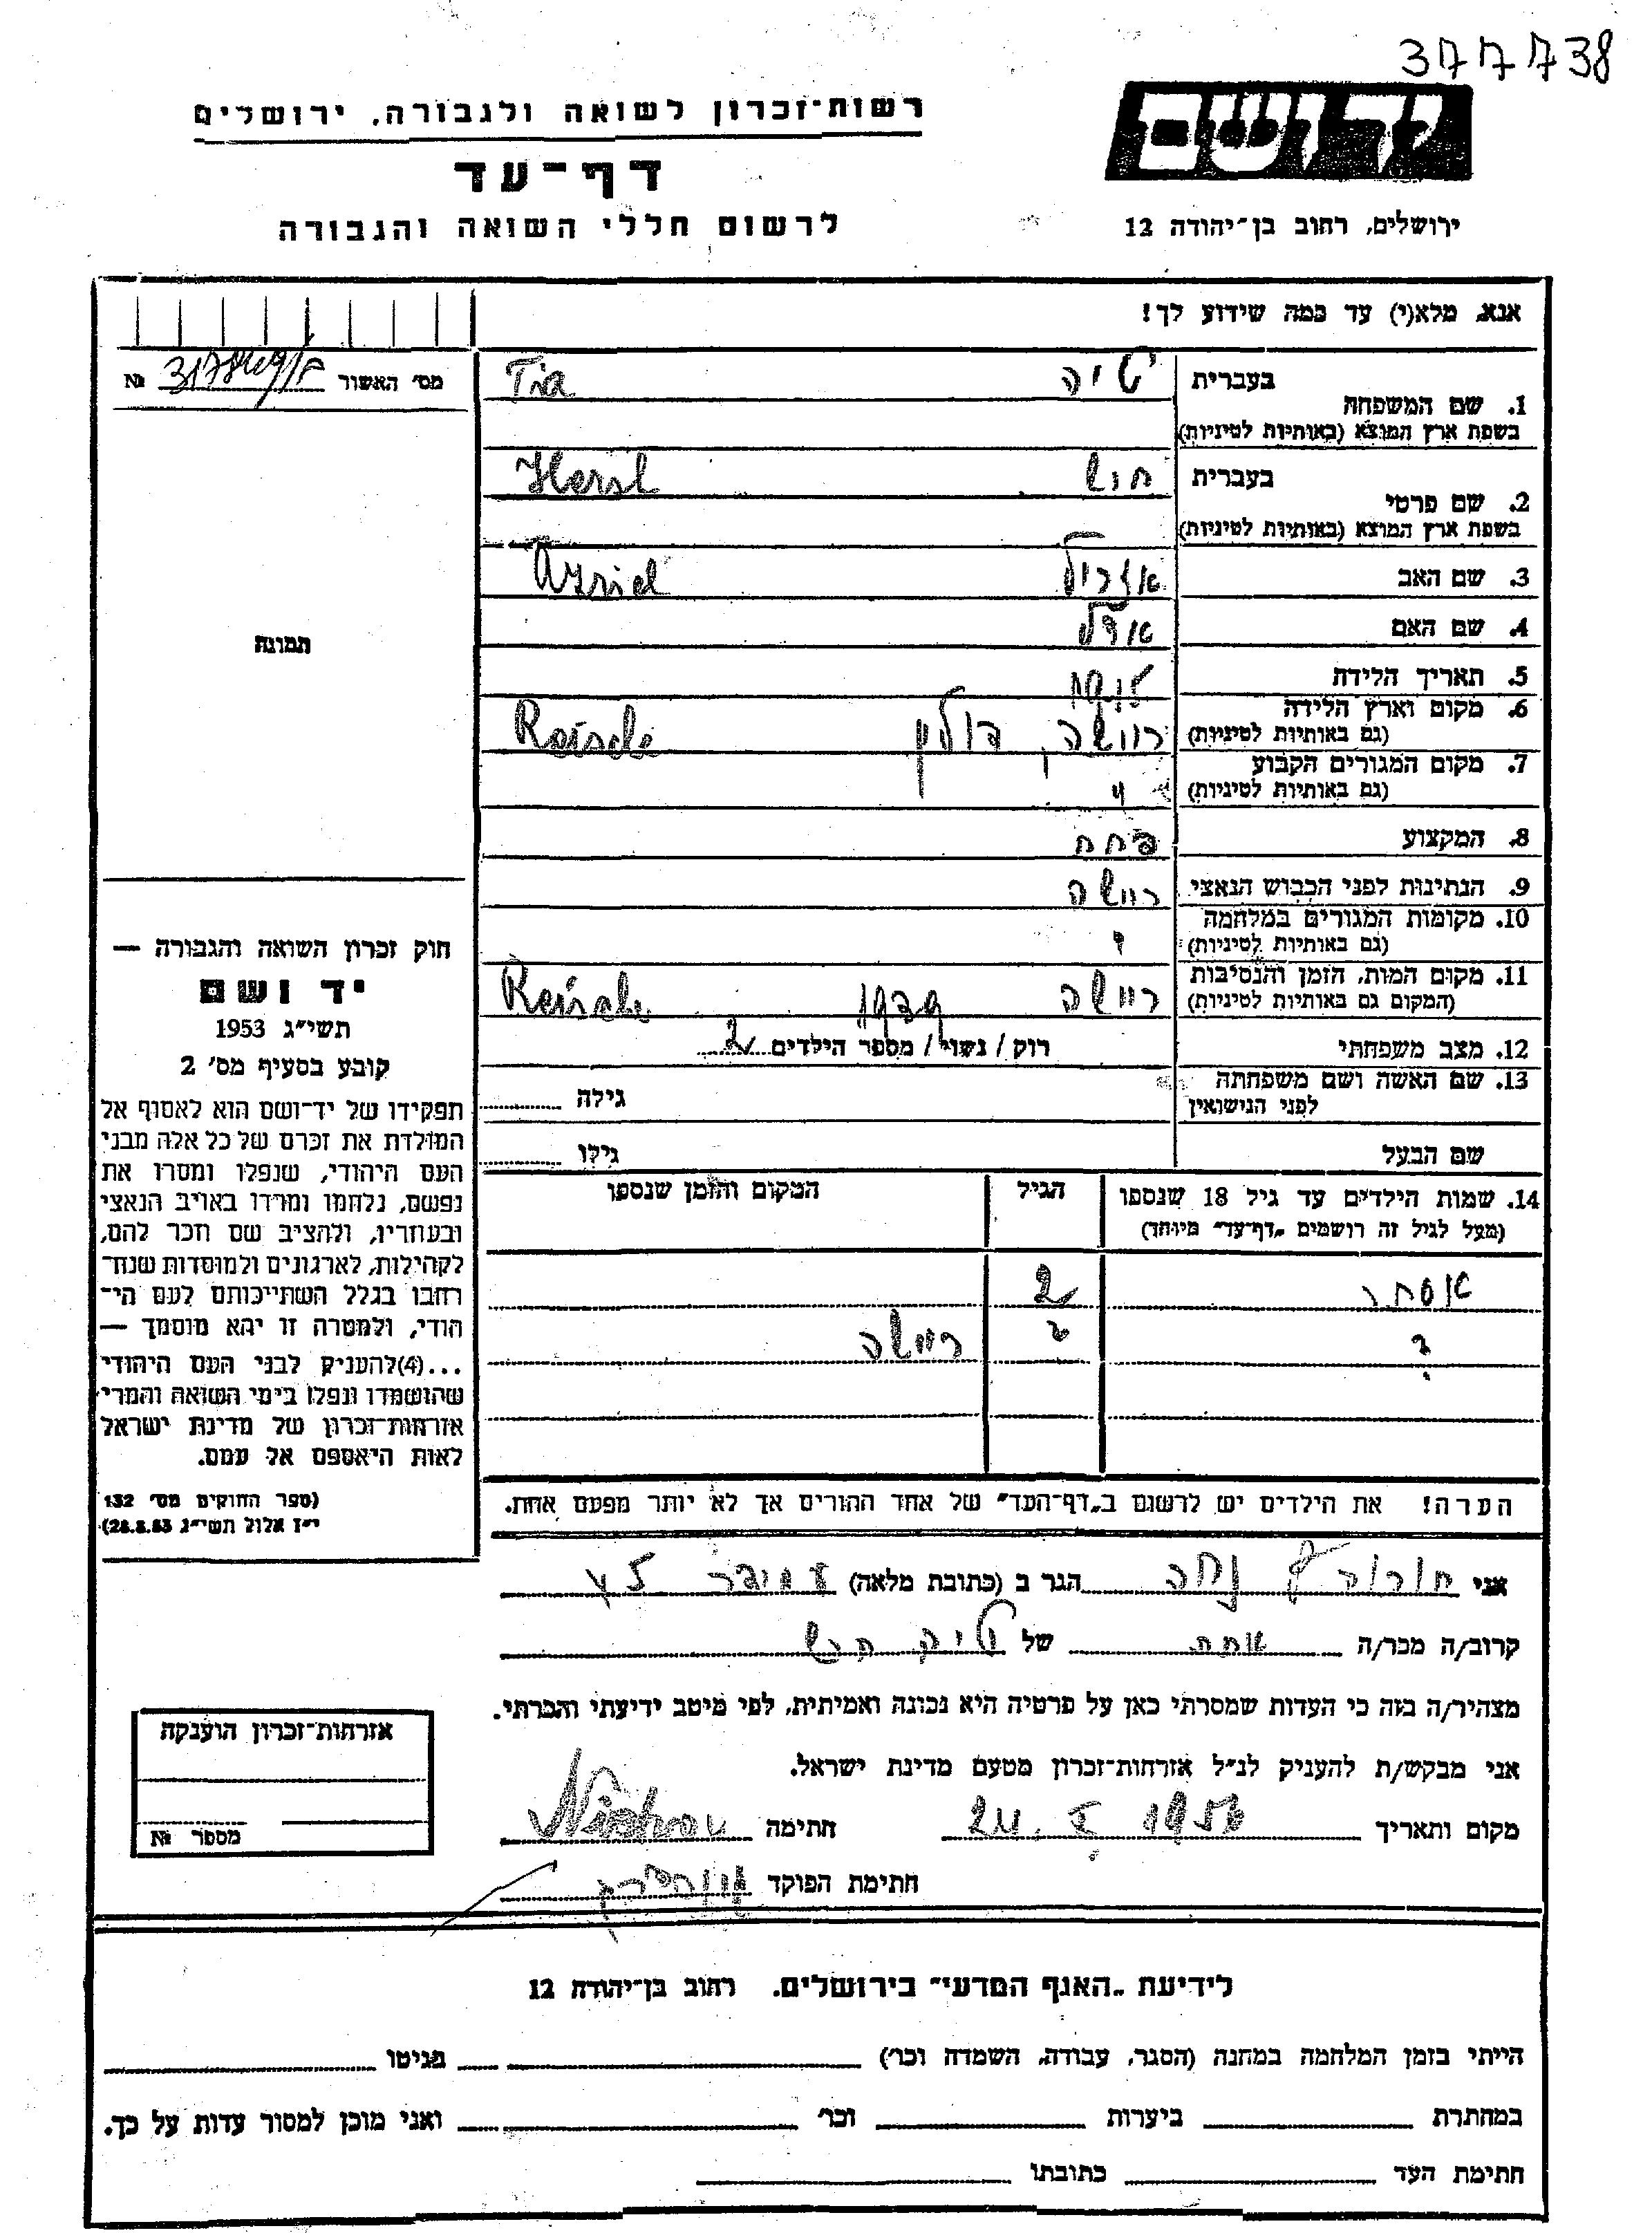 377738
רשות־זכרון לשואה ולגבורה, ירושלים
יד ושם
דף־עד
לרשום חללי השואה והגבורה
ירושלים, רחוב בן־יהודה 12
אנא, מלא(י) עד כמה שידוע לך!
מס׳ האשור №
1. שם המשפחה בעברית טיה Tia
בשפת ארץ המוצא (באותיות לטיניות)
2. שם פרטי בעברית הרש Hersh
בשפת ארץ המוצא (באותיות לטיניות)
3. שם האב עזריאל Azriel
4. שם האם אדל
5. תאריך הלידה
6. מקום וארץ הלידה ריישה, פולין Reische
(גם באותיות לטיניות)
7. מקום המגורים הקבוע "
(גם באותיות לטיניות)
8. המקצוע פחח
9. הנתינות לפני הכבוש הנאצי ריישה
10. מקומות המגורים במלחמה "
(גם באותיות לטיניות)
11. מקום המות, הזמן והנסיבות ריישה Reische
(המקום גם באותיות לטיניות)
12. מצב משפחתי רוק / נשוי / מספר הילדים 2
13. שם האשה ושם משפחתה
לפני הנישואין גילה
שם הבעל גילו
14. שמות הילדים עד גיל 18 שנספו הגיל המקום והזמן שנספו
(מעל לגיל זה רושמים „דף־עד״ מיוחד)
אסתר 2
? ריישה
הערה! את הילדים יש לרשום ב„דף־העד״ של אחד ההורים אך לא יותר מפעם אחת.
תמונה
חוק זכרון השואה והגבורה —
יד ושם
תשי״ג 1953
קובע בסעיף מס׳ 2
תפקידו של יד־ושם הוא לאסוף אל
המולדת את זכרם של כל אלה מבני
העם היהודי, שנפלו ומסרו את
נפשם, נלחמו ומרדו באויב הנאצי
ובעוזריו, ולהציב שם וזכר להם,
לקהילות, לארגונים ולמוסדות שנח־
רחבו בגלל השתייכותם לעם הי־
הודי, ולמטרה זו יהא מוסמך —
...(4)להעניק לבני העם היהודי
שהושמדו ונפלו בימי השואה והמרי
אזרחות־זכרון של מדינת ישראל
לאות היאספם אל עמם.
(ספר החוקים מס׳ 132
י״ז אלול תשי״ג 28.8.53)
אני הגר ב (כתובת מלאה)
קרוב/ה מכר/ה אחת של טיה הרש
מצהיר/ה בזה כי העדות שמסרתי כאן על פרטיה היא נכונה ואמיתית, לפי מיטב ידיעתי והכרתי.
אני מבקש/ת להעניק לנ״ל אזרחות־זכרון מטעם מדינת ישראל.
מקום ותאריך 24. X 1956 חתימה
חתימת הפוקד
אזרחות־זכרון הוענקה
מספר №
לידיעת „האגף המדעי״ בירושלים. רחוב בן־יהודה 12
הייתי בזמן המלחמה במחנה (הסגר, עבודה, השמדה וכר׳) בגיטו
במחתרת ביערות וכר׳ ואני מוכן למסור עדות על כך.
חתימת העד כתובתו